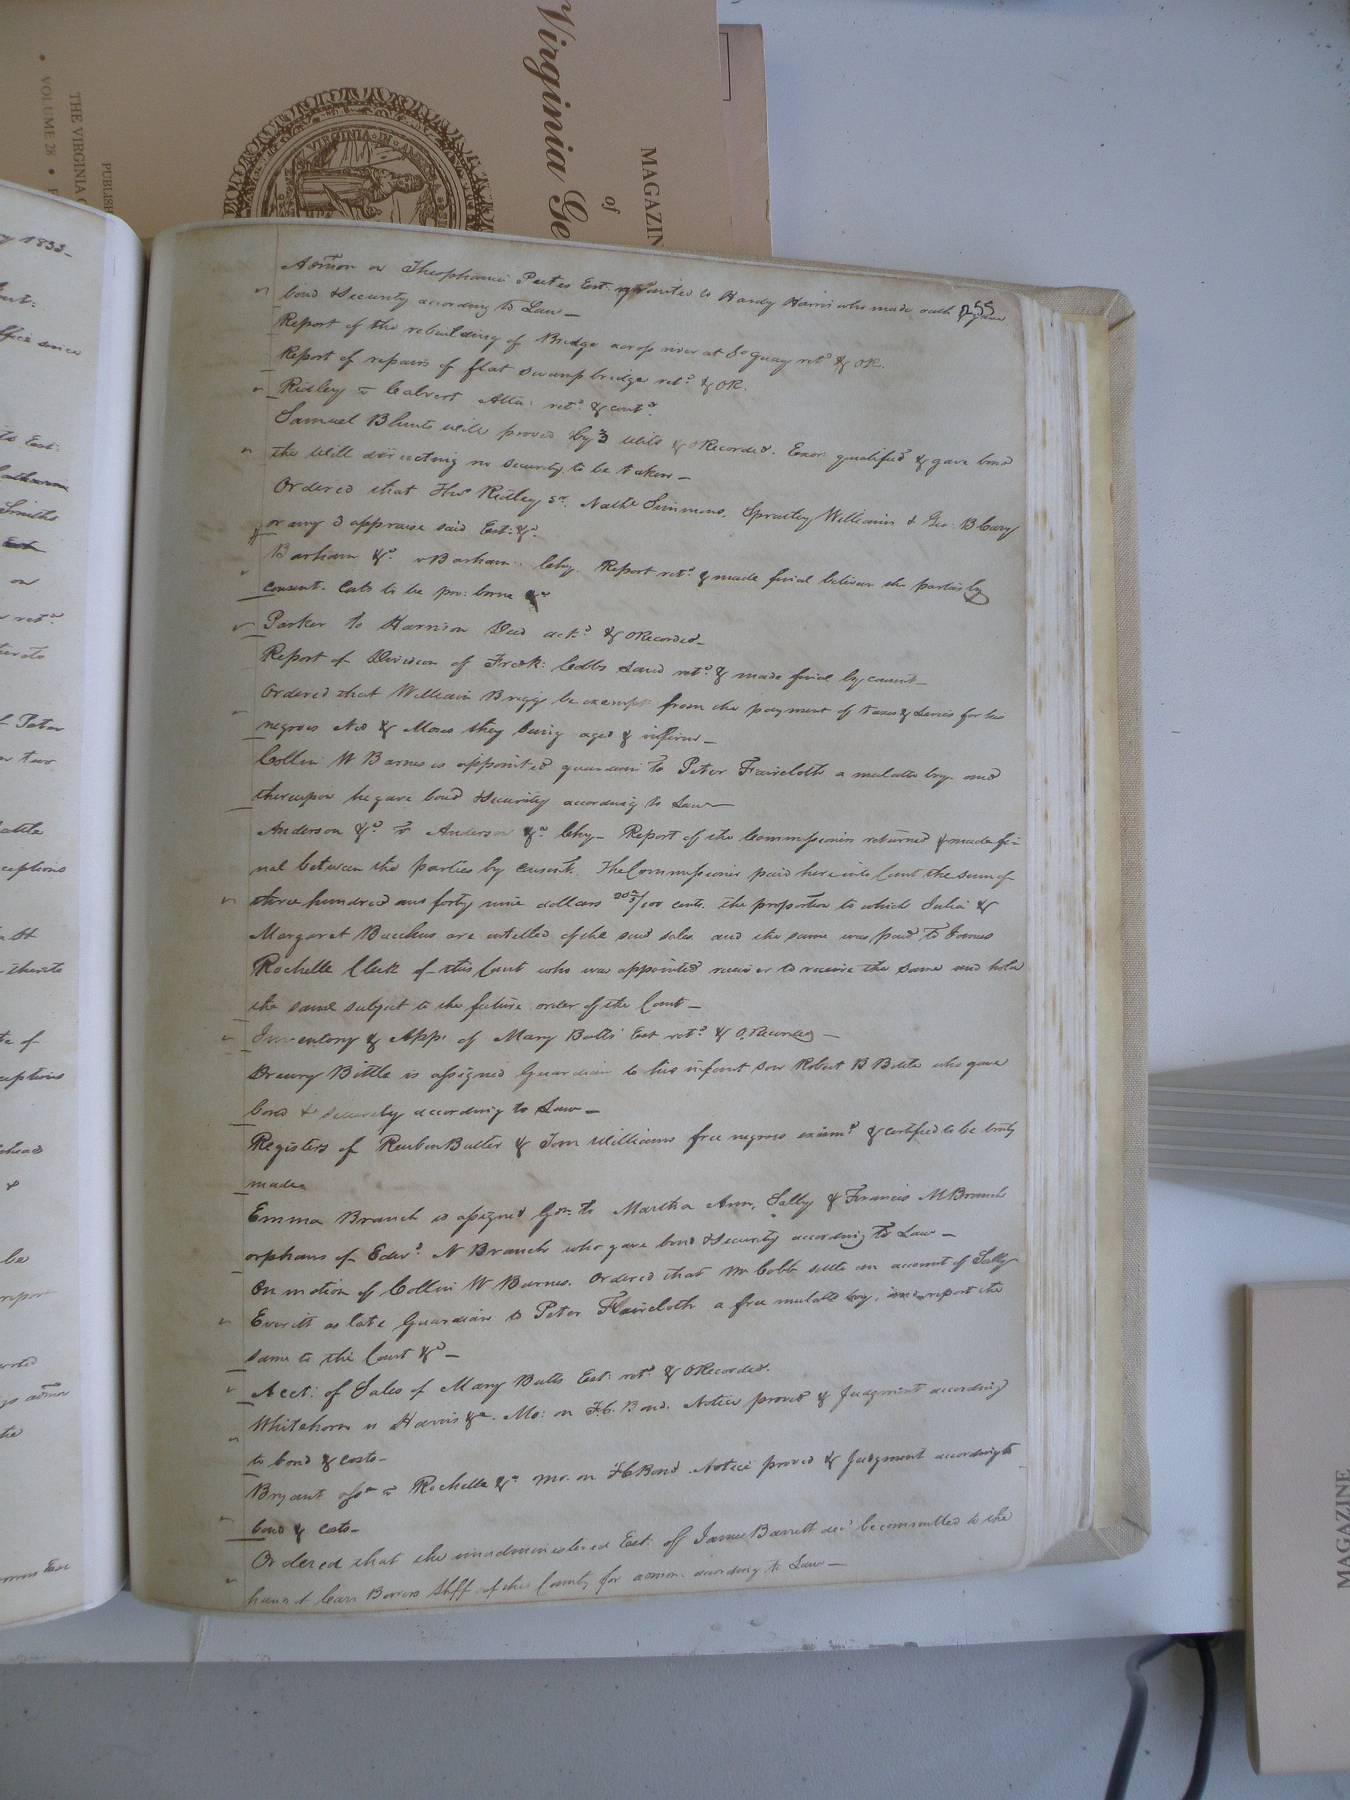 Virginia Ge
MAGAZIN
of
PUBLISH
THE VIRGINIA
VOLUME 28
VIRGINIA
y 1833-
255
Admon on Theophanies Peetes Est: granted to Hardy Harris who made oath & gave
bond & Security according to Law -
Report of the rebuilding of Bridge across river at So quay retd & OR.
Report of repairs of flat swamp bridge retd & OR.
Ridley v Calvert Atta: retd & contd.
Samuel Blunts will proved by 3 wits & ORecorded. Exor: qualified & gave bond
the Will directing no security to be taken -
Ordered that Thos Ridley Sr. Nathl Simmons, Spratley Williams & Geo: B Cary
or any 3 appraise said Est: &c.
Barham &c. v Barham Chy. Report retd & made final between the parties by
consent. Costs to be pro: borne
Parker to Harrison Deed ackd & ORecorded -
Report of Division of Fredk: Cobbs Land retd & made final by consent -
Ordered that William Brigg be exempt from the payment of taxes & Levies for his
negroes Ned & Moses they being aged & infirm -
Collin W Barnes is appointed guardian to Peter Faircloth a mulatto boy and
thereupon he gave bond & Security according to Law -
Anderson &c v Anderson &c Chy - Report of the Commissioners returned & made fi-
nal between the parties by consent. The Commissioner paid here into Court the sum of
three hundred and forty nine dollars /100 cents. the proportion to which Julia &
Margaret Bacchus are entitled of the said sales and the same was paid to James
Rochelle Clerk of this Court who was appointed receiver to receive the same and hold
the same subject to the future order of the Court -
Inventory & Appt of Mary Butts Est retd & O.Recorded -
Drewry Bittle is assigned Guardian to his infant son Robert B Bittle who gave
bond & security according to Law -
Registers of Reuben Butler & Tom Williams free negroes examd & certified to be truly
made
Emma Branch is assigned Gdn to Martha Ann, Sally & Francis M Branch
orphans of Edwd. N Branch who gave bond & Security according to Law -
On motion of Collin W Barnes. Ordered that Mr Cobb settle an account of Sally
Everitt as late Guardian to Peter Faircloth a free mulatto boy, report the
same to the Court &c -
Acct: of Sales of Mary Butts Est: retd & ORecorded.
Whitehorn v Harris &c. Mo: on F.C. Bond. Notice proved & Judgment according
to bond & costs -
Bryant asse v Rochelle &c Mo. on FC Bond. Notice proved & Judgment according to
bond & costs -
Ordered that the unadministered Est: of James Barrett decd be committed to the
hands of Barrow Shff of this County for admon. according to Law -
MAGAZINE